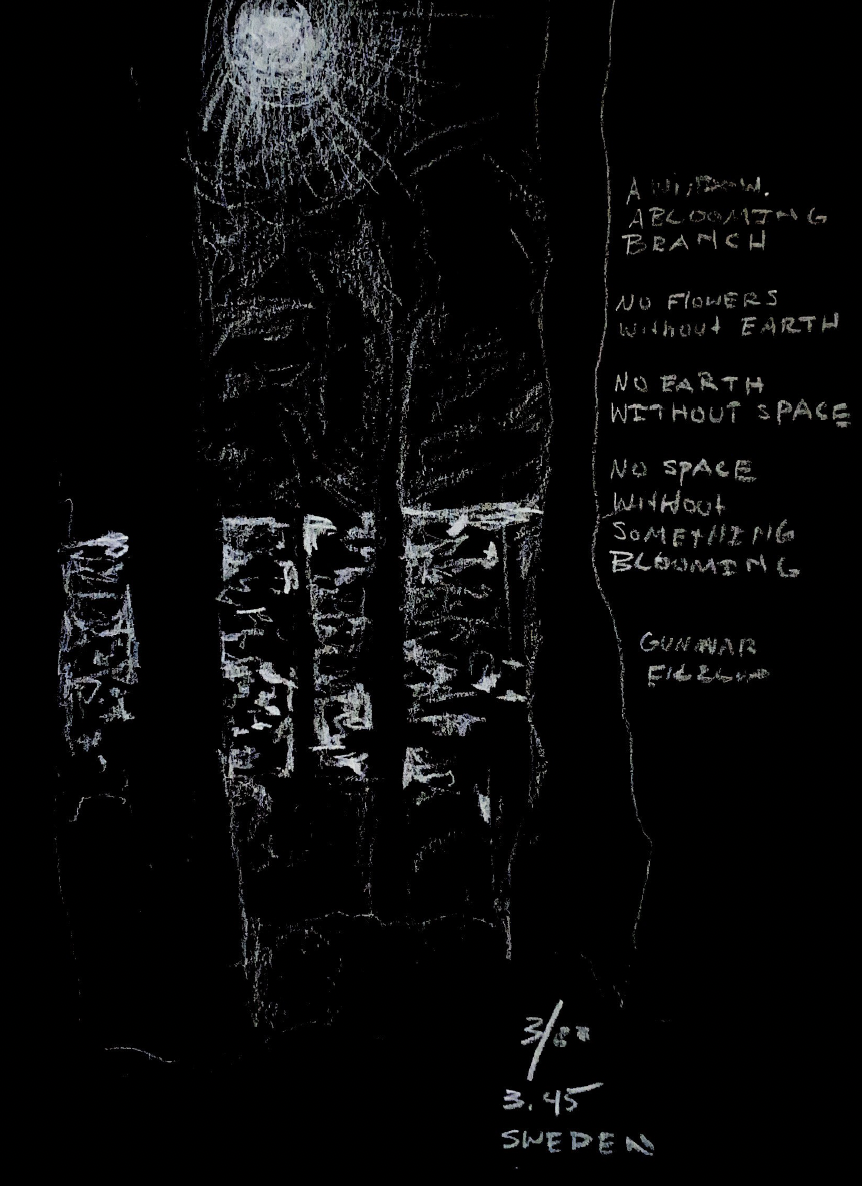 A WINDOW.
A BLOOMING
BRANCH
NO FLOWERS
without EARTH
NO EARTH
WITHOUT SPACE
NO SPACE
WITHOUT
SOMETHING
BLOOMING
GUNNAR
3.45
SWEDEN